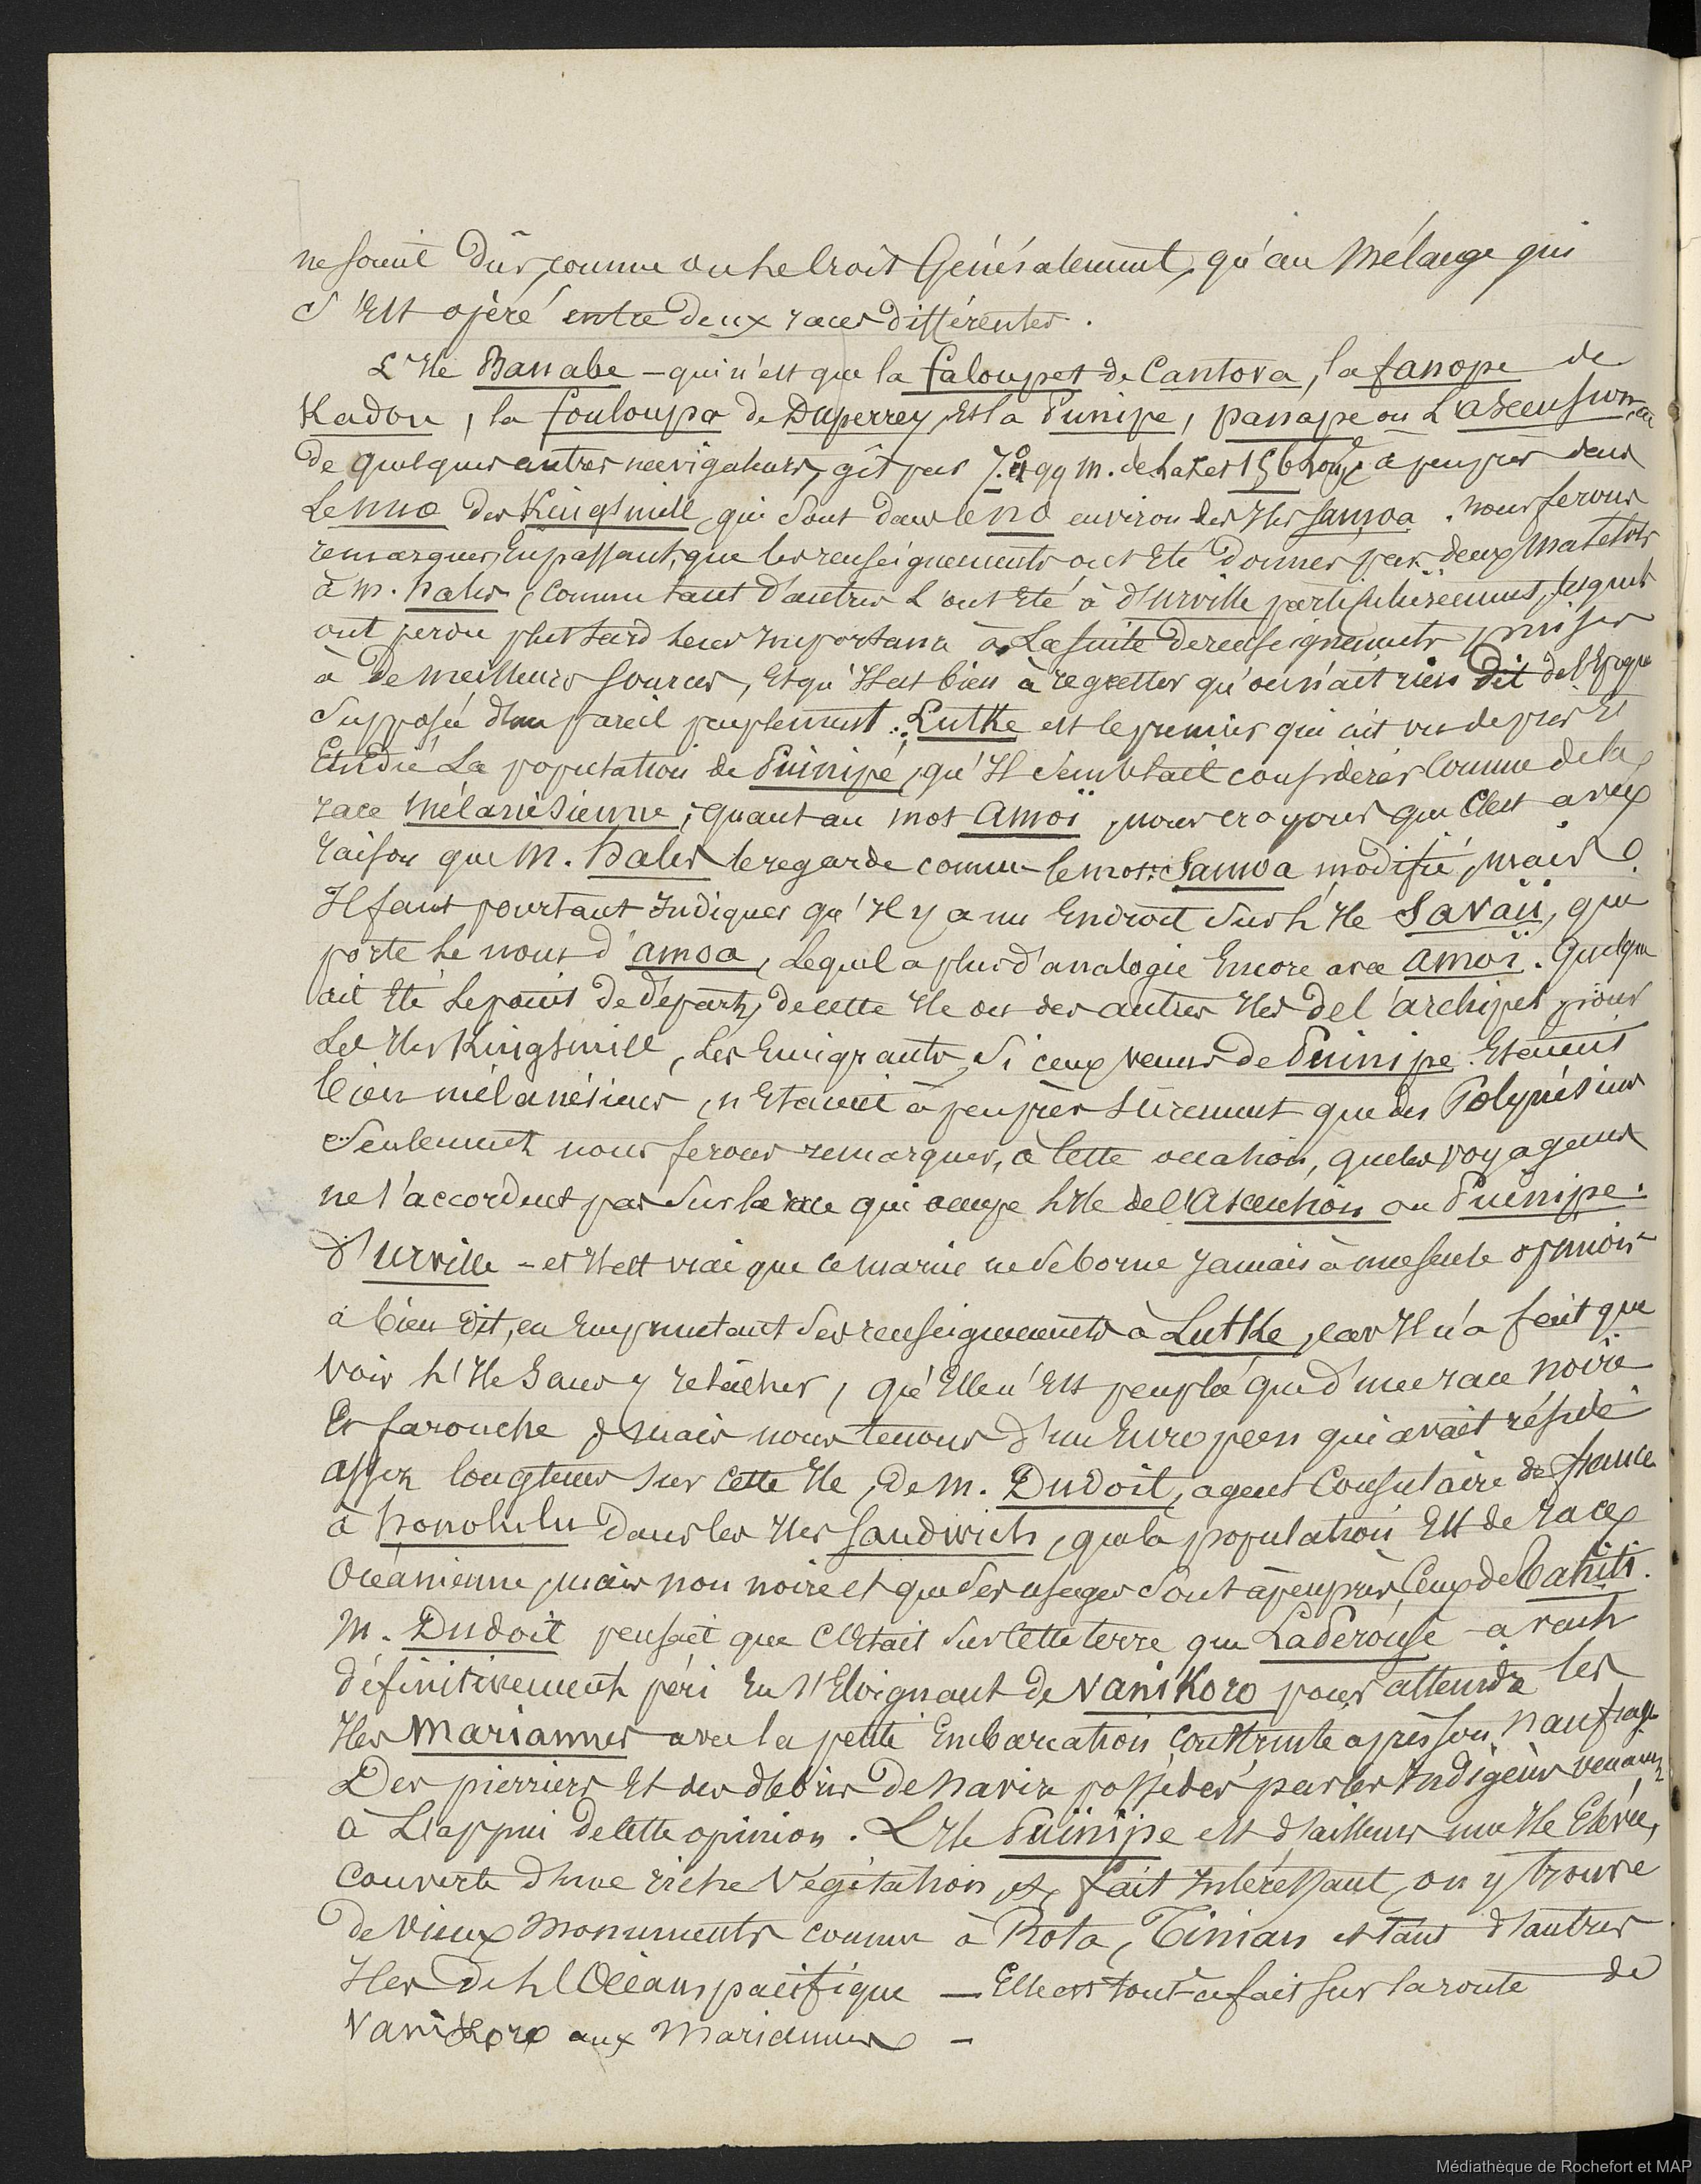 ne soient dûs, comme on le croit Généralement, qu'au Mélange qui
S'Est opéré entre deux races différentes.
L'Ile Banabe – qui n'est que la faloupet de Cantova, la fanope de
Kadou, la fouloupa de Duperrey, Et la Puinipe, panape ou L'ascension
de quelques autres navigateurs, gît par 99 m. de Lat. et 156 Long. à peu près dans
Le nno des Kingsmill, qui sont dans le no environ des Iles Samoa. nous ferons
remarquer, En passant, que les renseignements ont Eté donnés par deux Matelots
à M. hales, comme tant d'autres L'ont Eté à d'Urville particulièrement, lesquels
ont perdu plus tard leur Importance à La suite de renseignements puisés
à de meilleures sources, Et qu'Il est bien à regretter qu'on n'ait rien dit de l'Epoque
Supposée d'un pareil peuplement. Lutke est le premier qui ait vu de près Et
Etudié La population de Puinipe, qu'Il semblait considérer comme de la
race Mélanésienne; quant au mot Amoï, nous croyons que C'est avec
raison que M. hales le regarde comme le mot Samoa modifié, mais
Il faut pourtant Indiquer qu'Il y a un Endroit Sur L'Ile Savaii, qui
porte le nom d'amoa, Lequel a plus d'analogie Encore avec amoï. Quelque
ait Eté Le point de départ, de cette Ile ou des autres Iles de l'archipel pour
Les Iles Kingsmill, Les Emigrants, Si ceux venus de Puinipe Etaient
bien mélanésiens, n'Etaient à peu près sûrement que des Polynésiens
Seulement nous ferons remarquer, à cette occasion, que les voyageurs
ne s'accordent pas Sur la race qui occupe L'Ile de l'Ascension ou Puinipe.
d'Urville – et Il est vrai que ce marin ne se borne Jamais à une seule opinion
a bien dit, en Empruntant Ses renseignements à Lutke, car Il n'a fait que
voir L'Ile Sans y relâcher, qu'Elle n'Est peuplée que d'une race noire
Et farouche; mais nous tenons d'un Européen qui avait résidé
assez longtems sur cette Ile, de M. Dudoit, agent Consulaire de france
à honolulu dans les Iles Sandwich, que la population Est de race
Océanienne, mais non noire et que Ses usages Sont à peu près Ceux de Tahiti.
M. Dudoit pensait que C'Etait Sur Cette terre que LaPérouse avait
définitivement péri En S'Eloignant de Vanikoro pour atteindre les
Iles Mariannes avec la petite Embarcation construite après son naufrage
Des pierriers Et des débris de navire possédés par les Indigènes venaient
à L'appui de cette opinion. L'Ile Puinipe est d'ailleurs une Ile Elévée,
couverte d'une riche Végétation, et, fait Intéressant, on y trouve
de vieux Monuments comme à Rota, Tinian et tant d'autres
Iles de L'Océan pacifique — Elle est tout à fait sur la route de
Vanikoro aux Mariannes –
Médiathèque de Rochefort et MAP